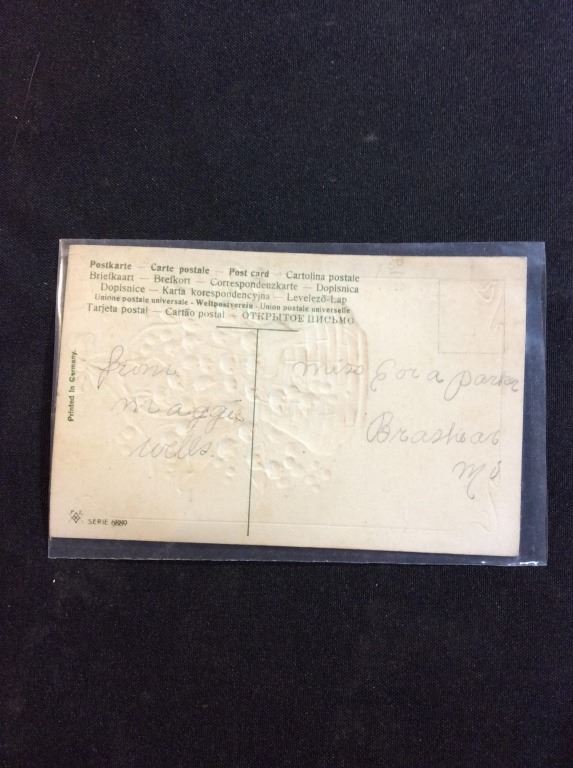 Postkarte — Carte postale — Post card — Cartolina postale
Briefkaart — Brefkort — Correspondenzkarte — Dopisnica
Dopisnice — Karta korespondencyjna — Levelező-Lap
Unione postale universale - Weltpostverein - Union postale universelle
Tarjeta postal — Cartão postal — ОТКРЫТОЕ ПИСЬМО
Printed in Germany.
from
maggie
wells
miss Cora Parker
Brashear
Mo
SERIE 6889